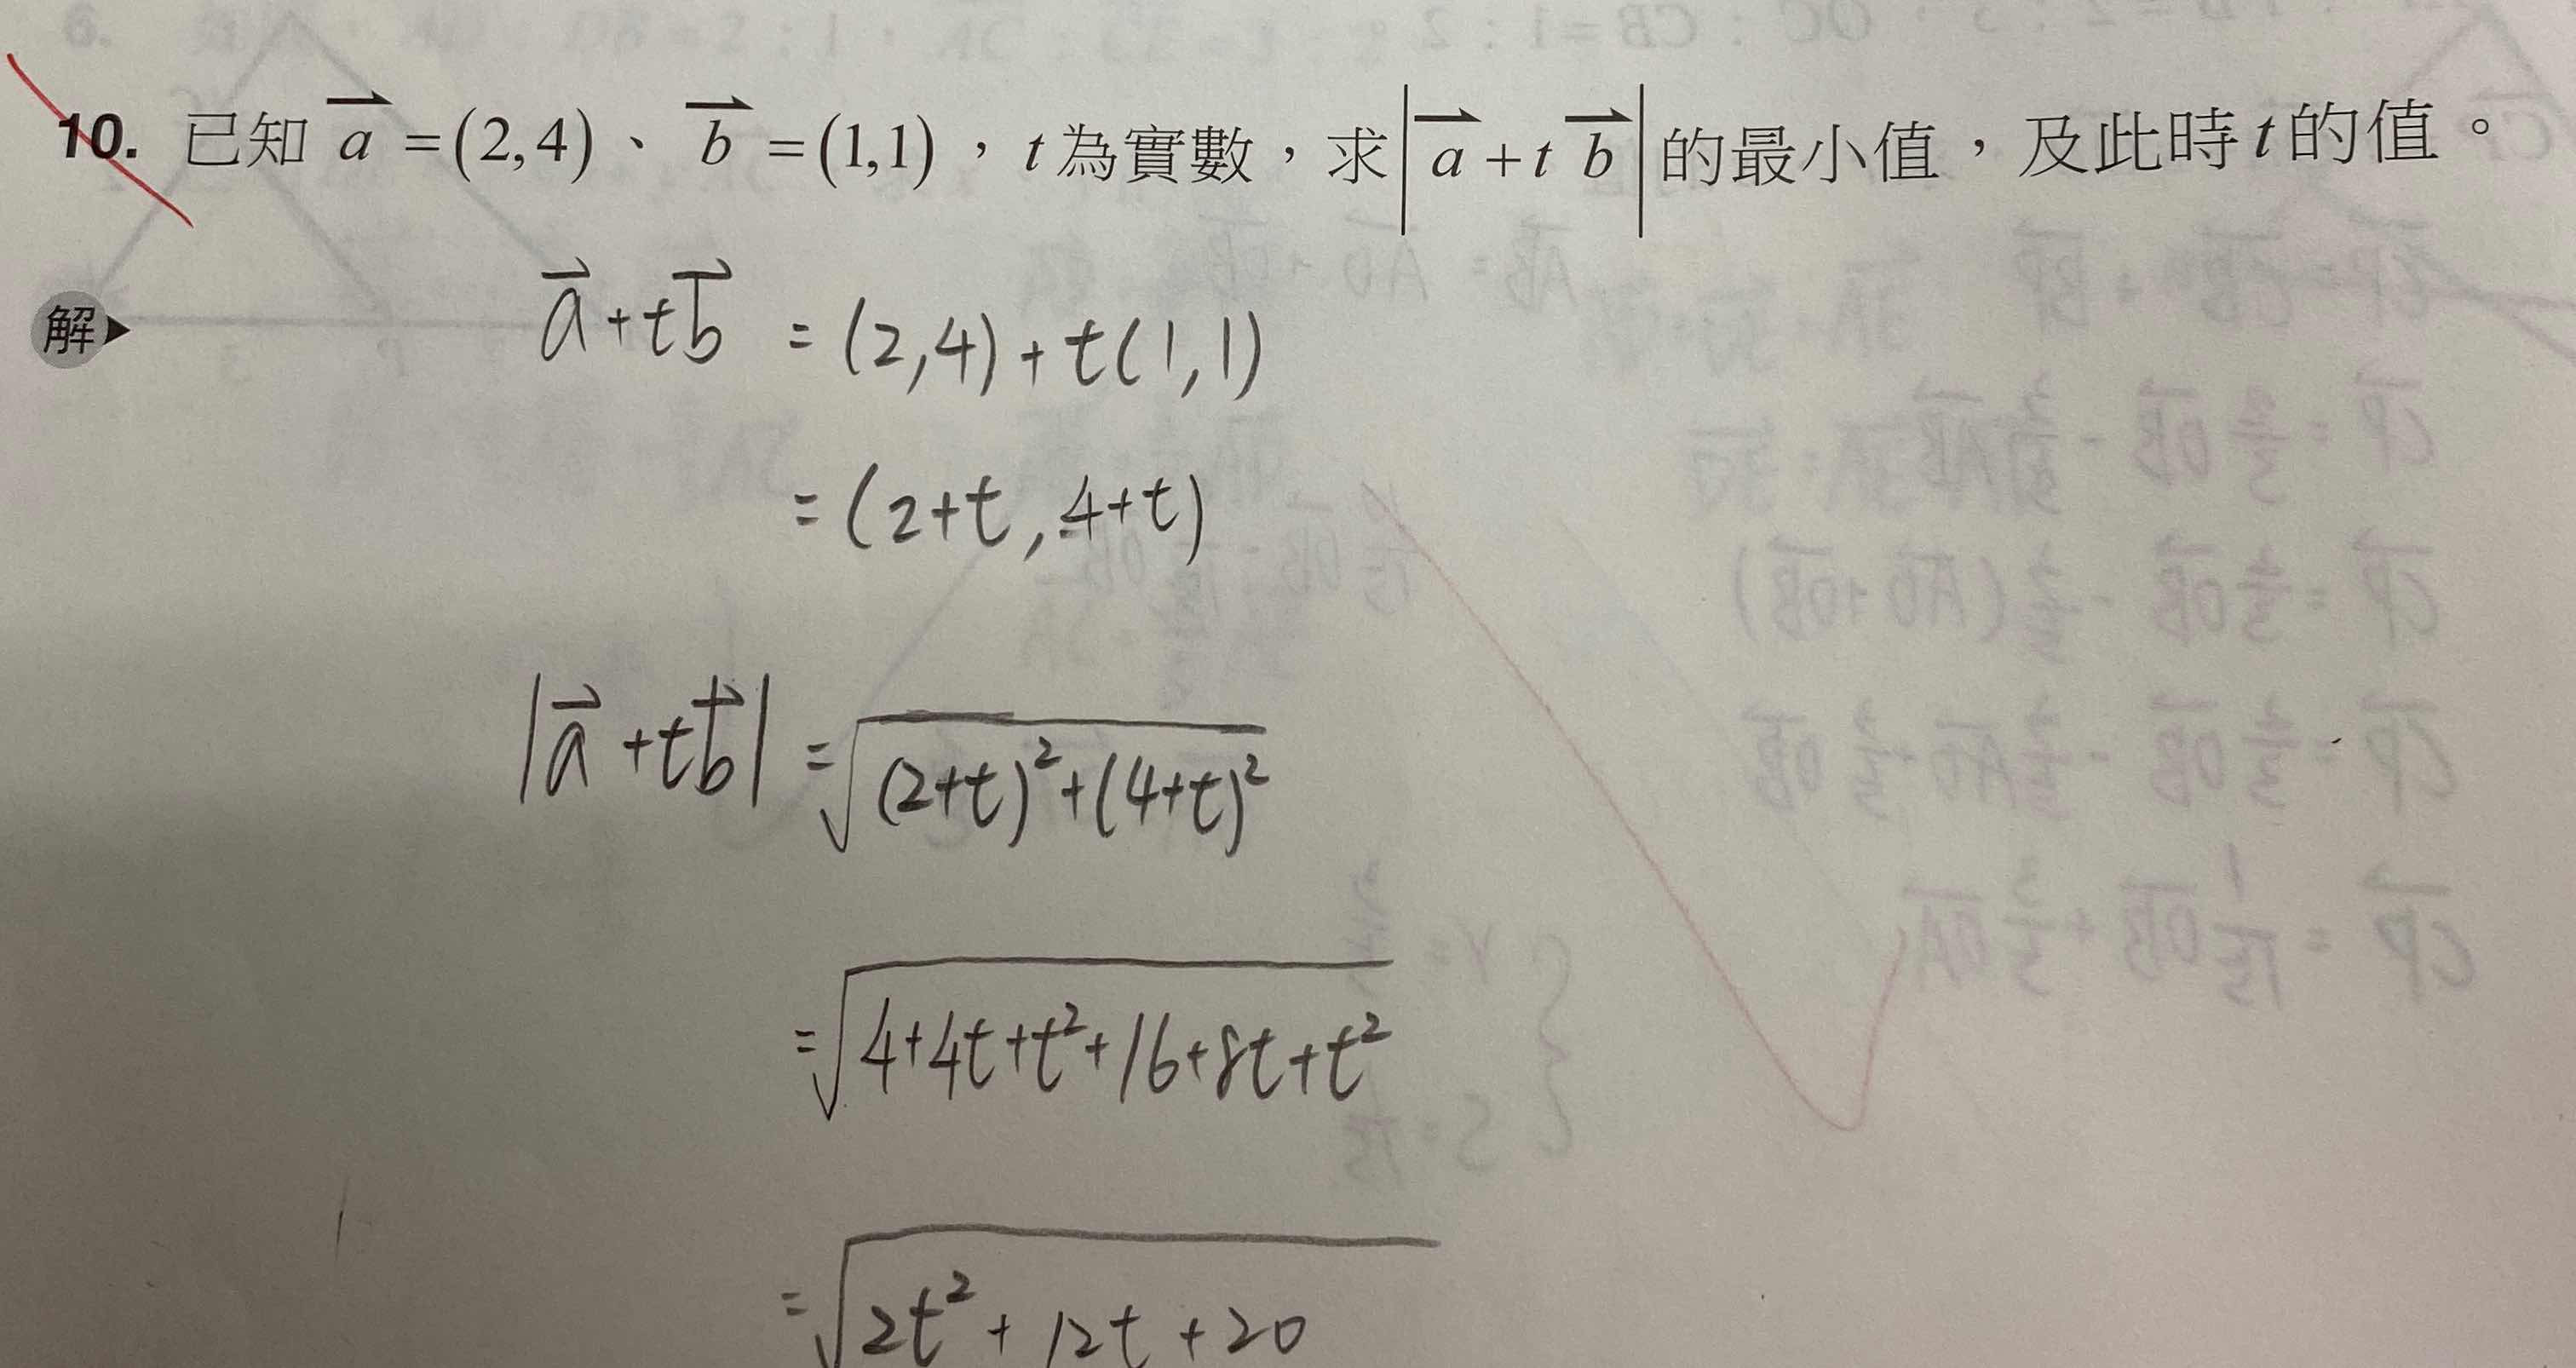 10. 已知 a⃗ =(2,4)、 b⃗ =(1,1),t為實數,求|a⃗ +t b⃗|的最小值,及此時t的值。
解▶
a⃗+tb⃗ = (2,4)+t(1,1)
= (2+t, 4+t)
|a⃗+tb⃗| = √((2+t)²+(4+t)²)
= √(4+4t+t²+16+8t+t²)
= √(2t²+12t+20)